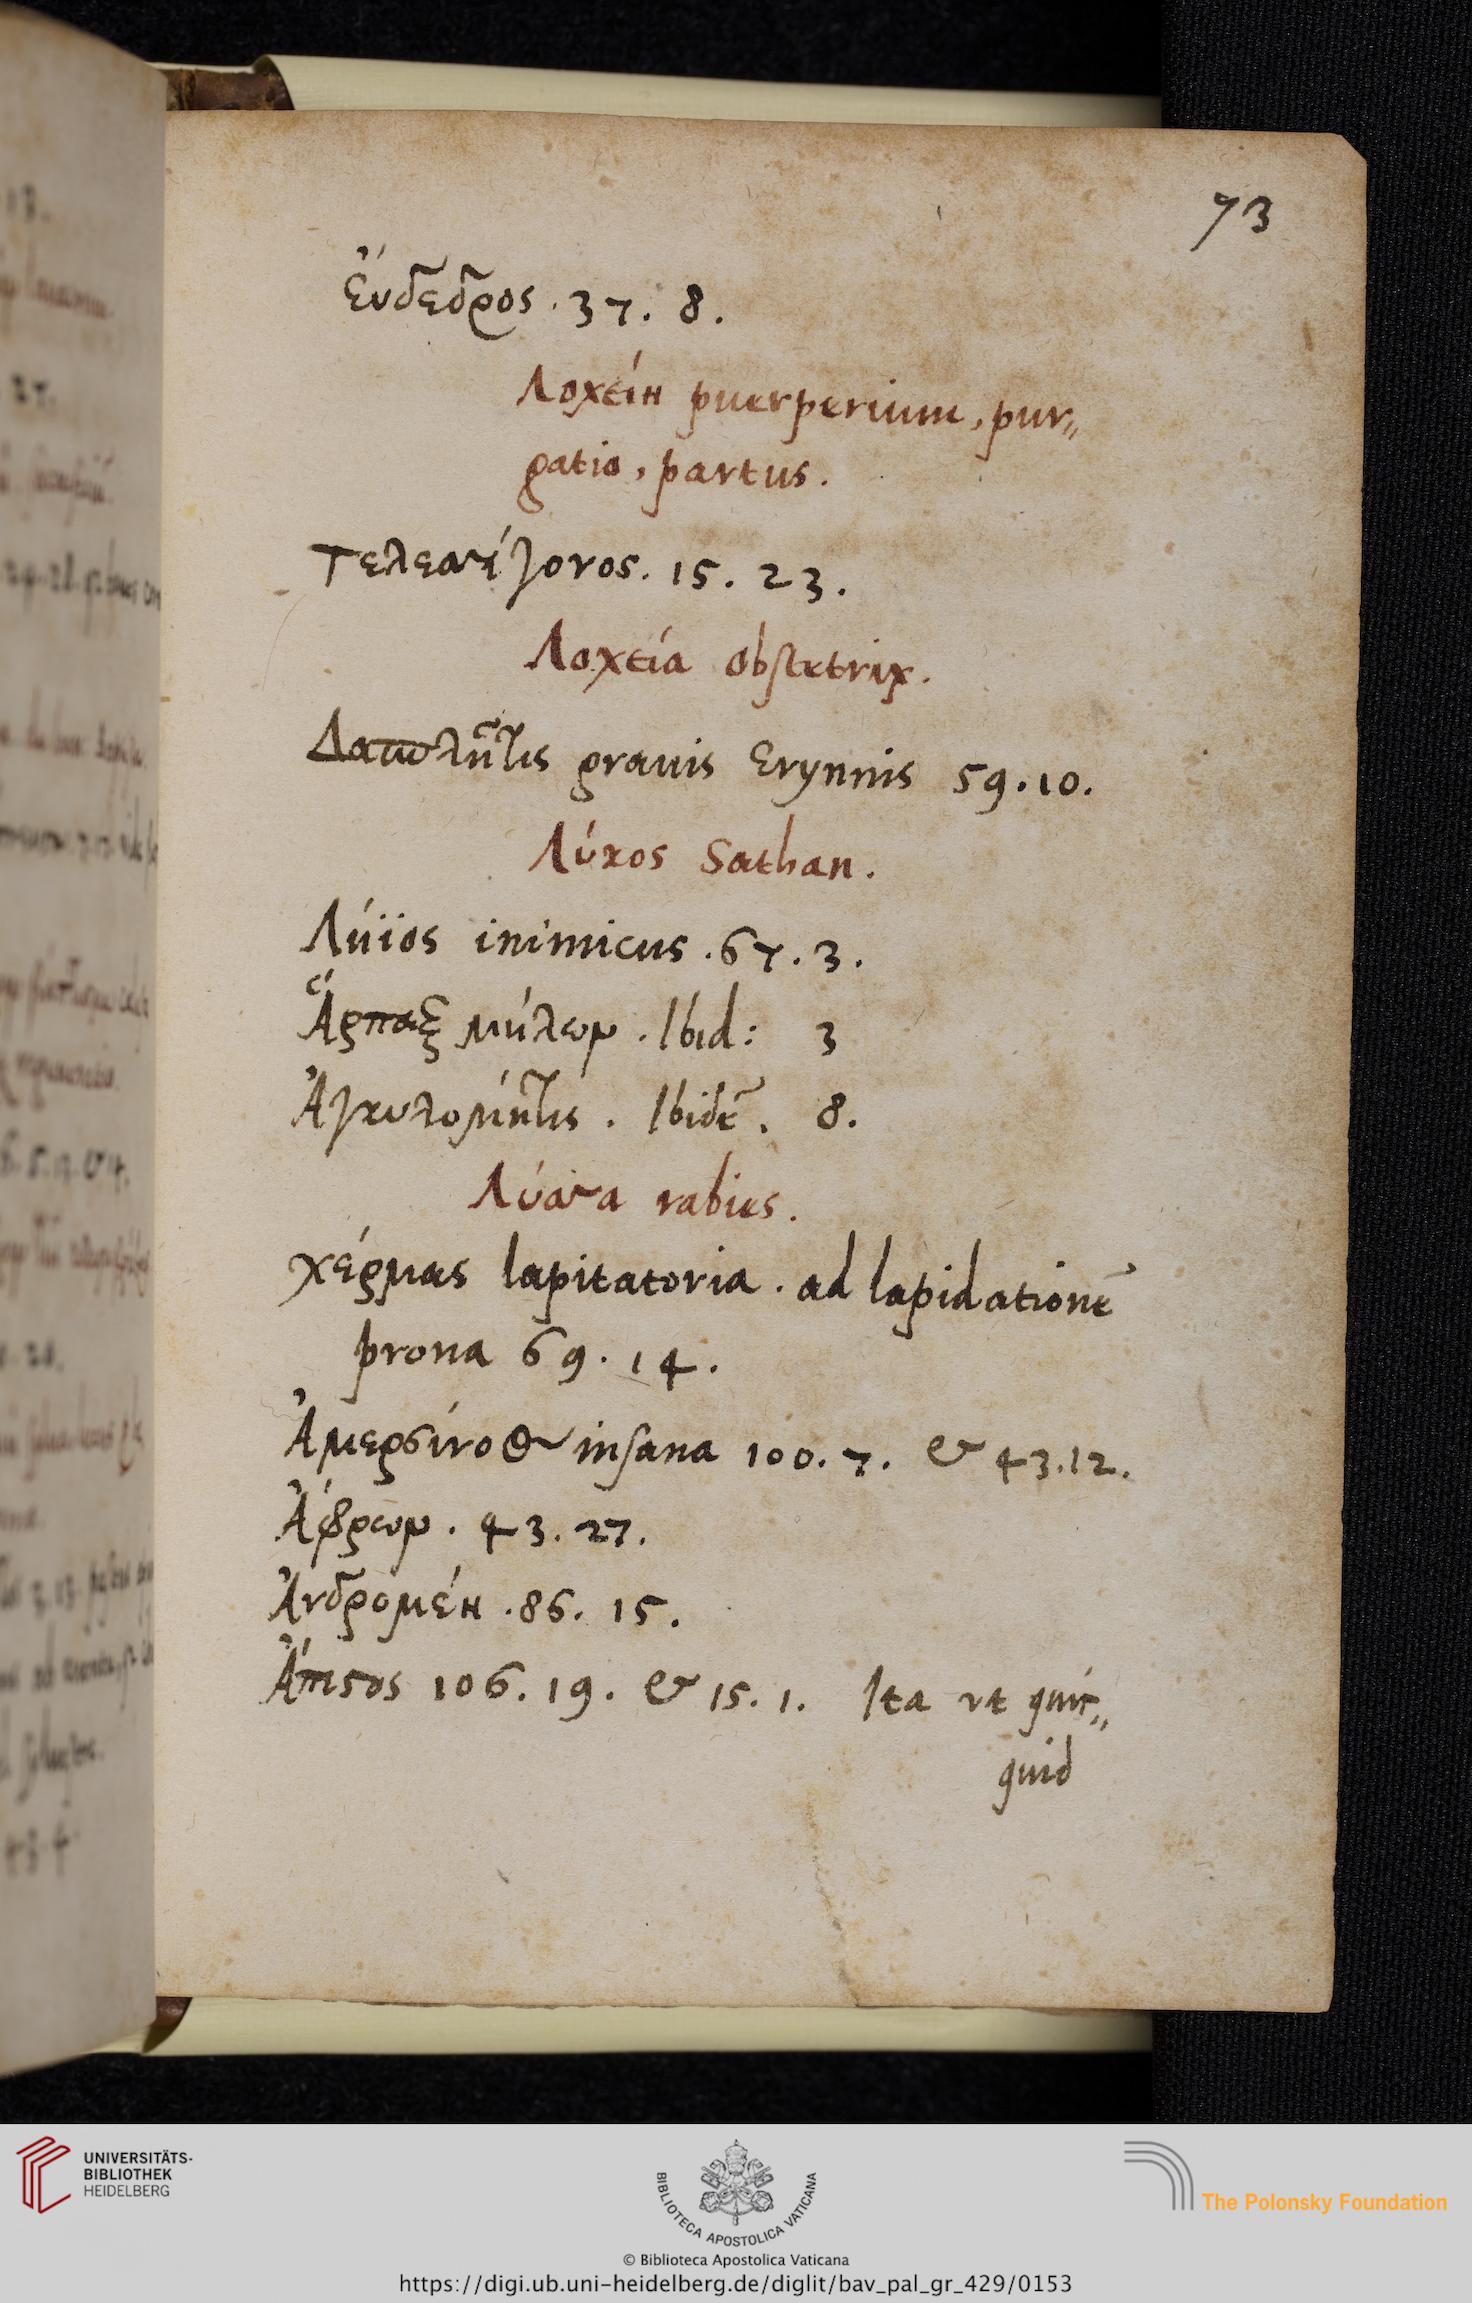 73
Εὔδεδρος . 37. 8.
Λοχείη puerperium, pur„
gatio, partus.
Τελεσίγονος. 15. 23.
Λοχεία obstetrix.
gravis Erynnis 59.10.
Λύκος Sathan.
Λήϊος inimicus . 67. 3.
Ἅρπαξ μήλων . Ibid: 3
Ἀγκυλομήτις . Ibidē. 8.
Λύσσα rabies.
χέρμας lapitatoria . ad lapidationē
prona 69. 14.
Ἀμερσίνοος insana 100. 7. & 43.12.
Ἄφρων . 43. 27.
Ἀνδρομέη . 86. 15.
Ἄπιστος 106. 19. & 15. 1. Ita vt quic„
quid
UNIVERSITÄTS-
BIBLIOTHEK
HEIDELBERG
BIBLIOTECA APOSTOLICA VATICANA
The Polonsky Foundation
© Biblioteca Apostolica Vaticana
https://digi.ub.uni-heidelberg.de/diglit/bav_pal_gr_429/0153